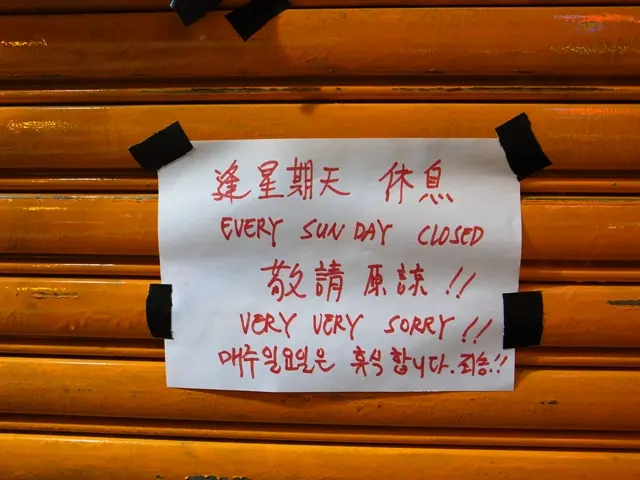 逢星期天 休息
EVERY SUNDAY CLOSED
敬請原諒!!
VERY VERY SORRY!!
매주일요일은 휴식합니다.죄송!!